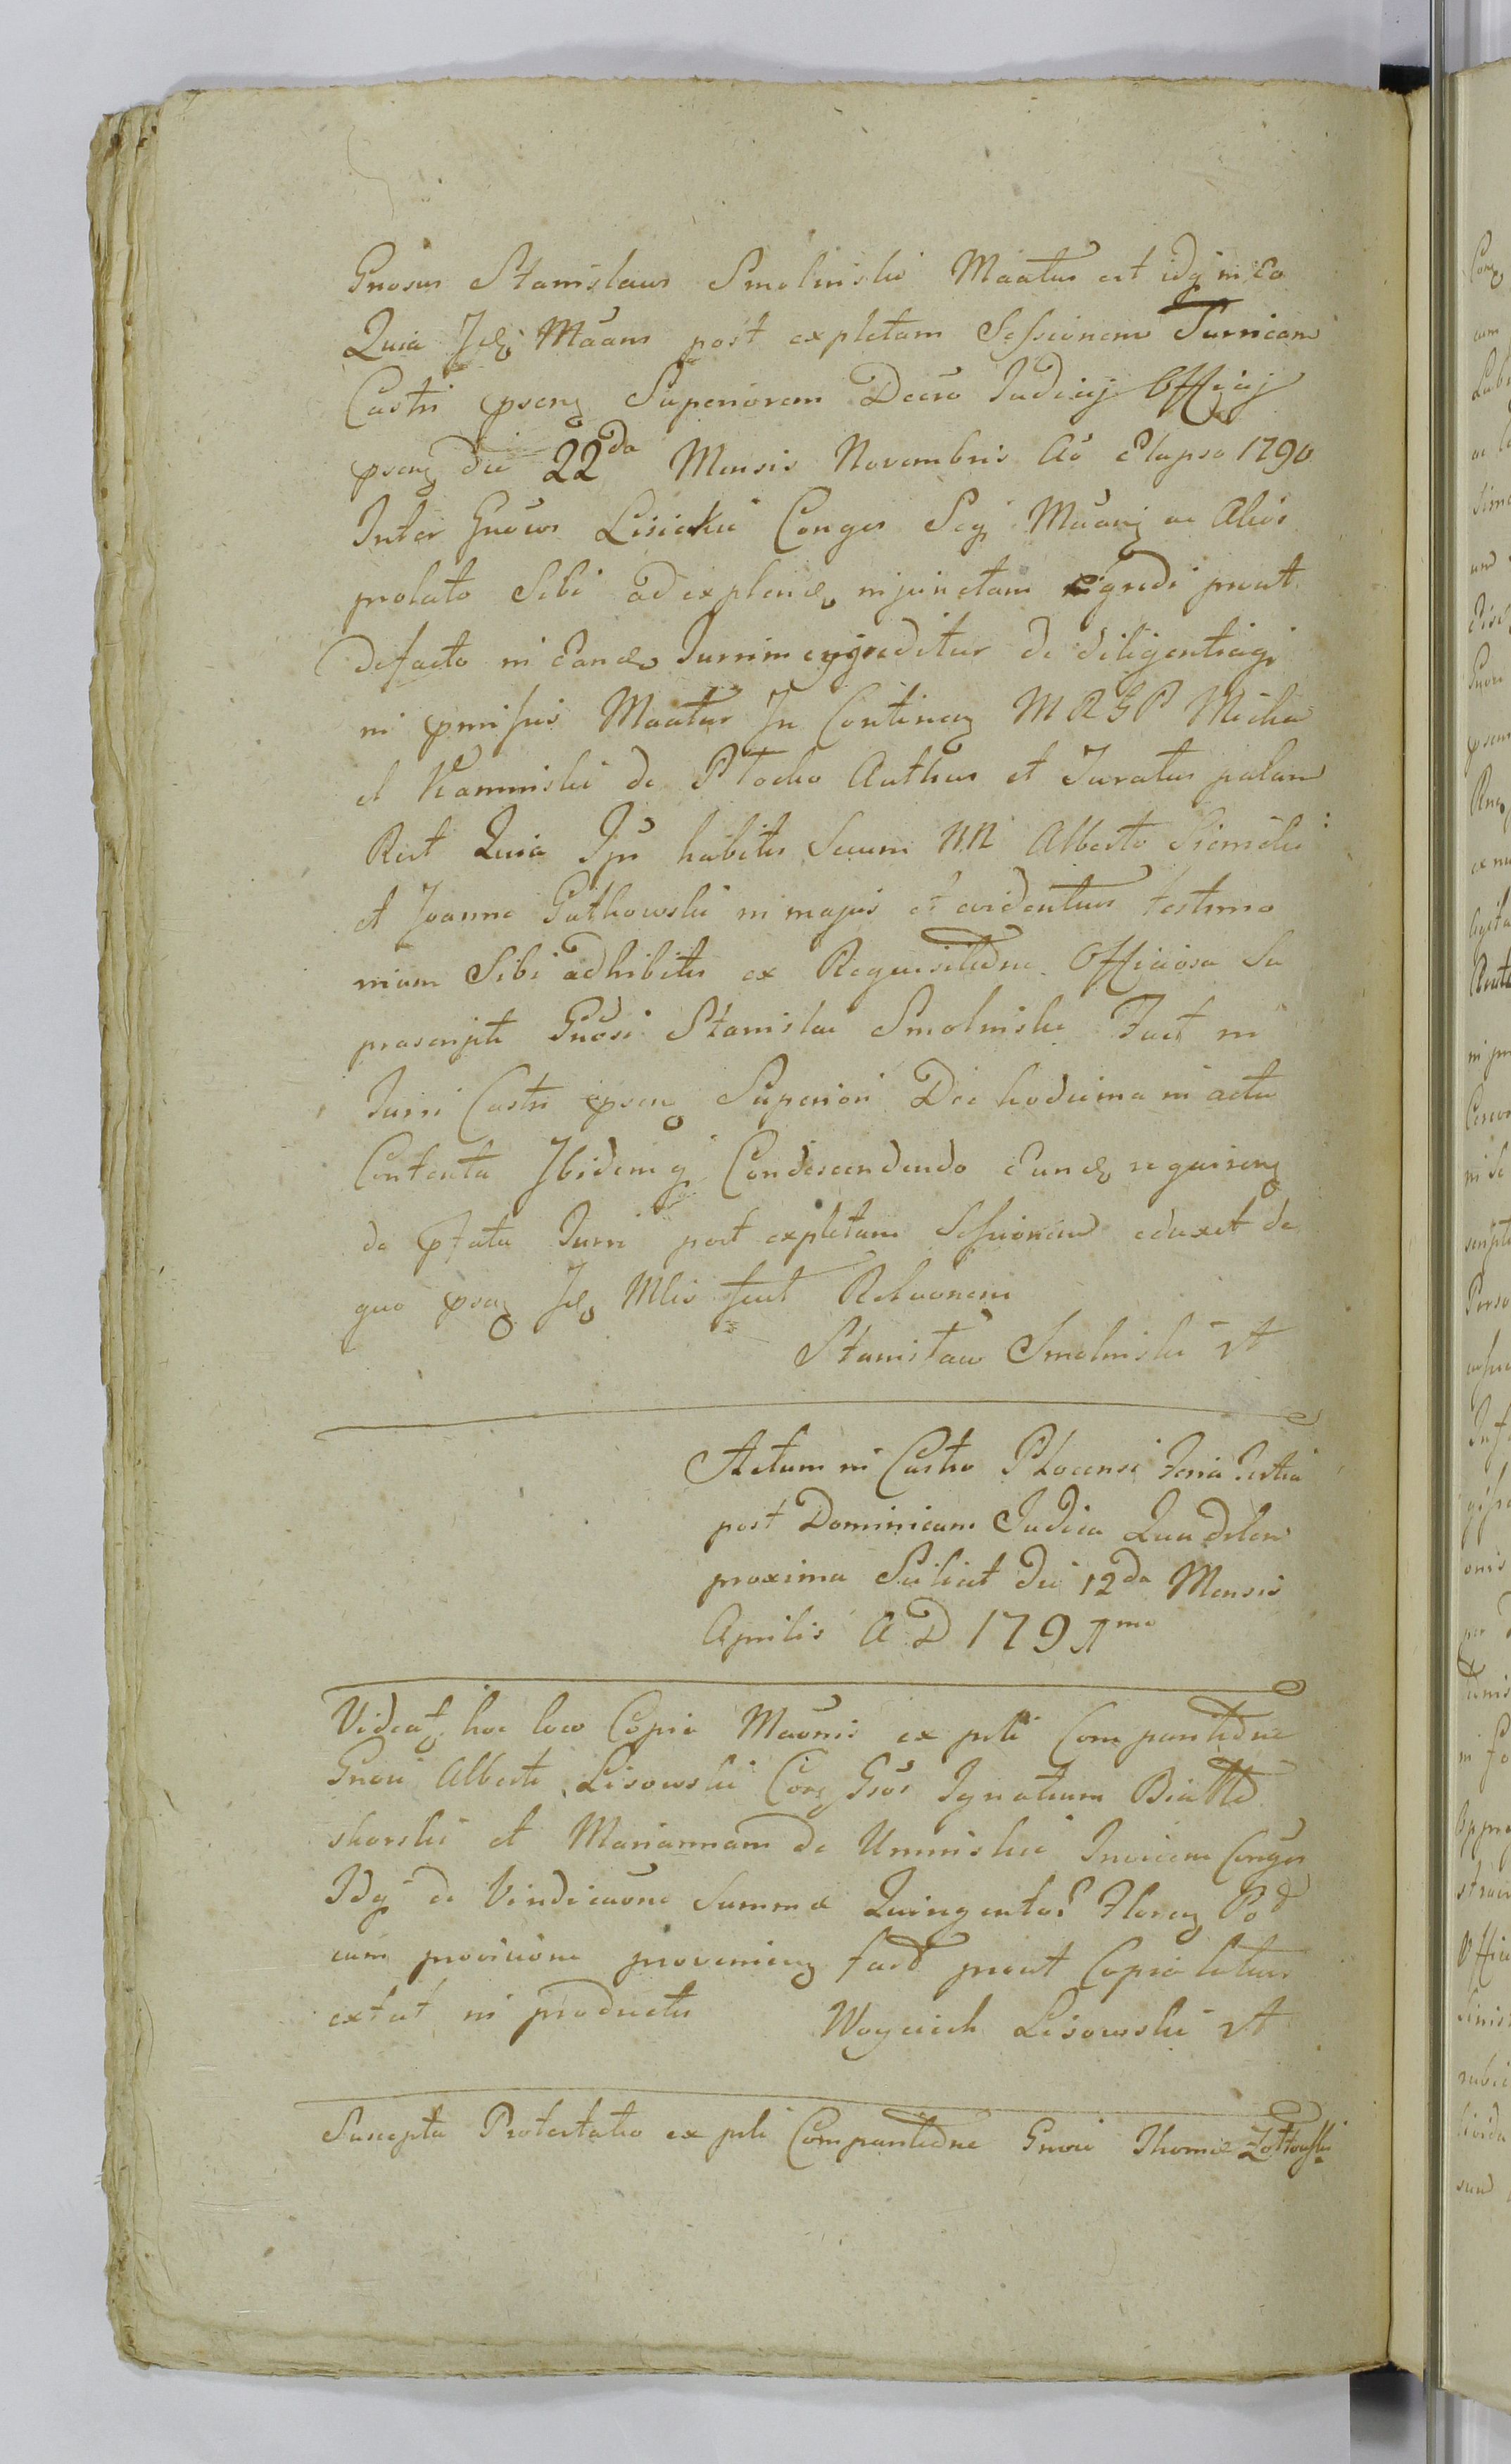 Gnosus Stanislaus Smolinski Maatus est idq in Eo
Quia Jdē Mãans post expletam Sessionem Turricam
Castri pseng Superiorem Decro Judicij Officij
pseng die 22da Mensis Novembris Aō Elapso 1790
Inter Gnõos Lisicki Conges Seq Mãang ac Alios
prolato Sibi ad explend injunctam egredi prout
defacto in Eand Turrim egreditur de diligentiaq
in pmissis Maatur In Conting M R G P Micha
el Kaminski de Płocko Authus et Juratus palam
Rect Quia Ips habitis Secum NN Alberto Siemski
et Joanne Gutkowski in majus et evidentius testimo
nium Sibi adhibitis ex Requisitione Officiosa Su
prascripti Gnosi Stanislai Smolinski Fuit in
Turri Castri pseng Superiori Die hodierna in actu
Contenta Ibidemq Condescendendo Eund requireng
de pfata Turri post expletam Sessionem eduxit de
quo pseng Jd Mlis fecit Relaonem
Stanisław Smolinski
Actum in Castro Plocensi Feria Tertia
post Dominicam Judica Quadrlem
proxima Scilicet die 12da Mensis
Aprilis A D 1791mo
Videat hoc loco Copia Maonis ex psli Comparitione
Gnosi Alberti Lisowski Cong Gnos Ignatium Biało
skorski et Mariannam de Uminskie Invicem Conges
Idq de Vindicaone Summa Quingentor Floreng Pol
cum provisione proveniend fact prout Copia latius
extat in productis Woyciech Lisowski
Suscepta Protestatio ex psli Comparitione Gnosi Thoma